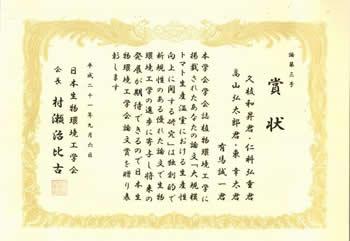 論第三号
賞状
久枝和昇君・仁科弘重君
高山弘太郎君・東幸太君
有馬誠一君
本学会学会誌植物環境工学に
掲載されたあなたの論文「大規模
トマト生産温室における生産性
向上に関する研究」は独創的で
新規性のある優れた論文で生物
環境工学の進歩に寄与し将来の
発展が期待できるので日本生
物環境工学会論文賞を贈り表
彰します
平成二十一年九月六日
日本生物環境工学会
会長 村瀬治比古